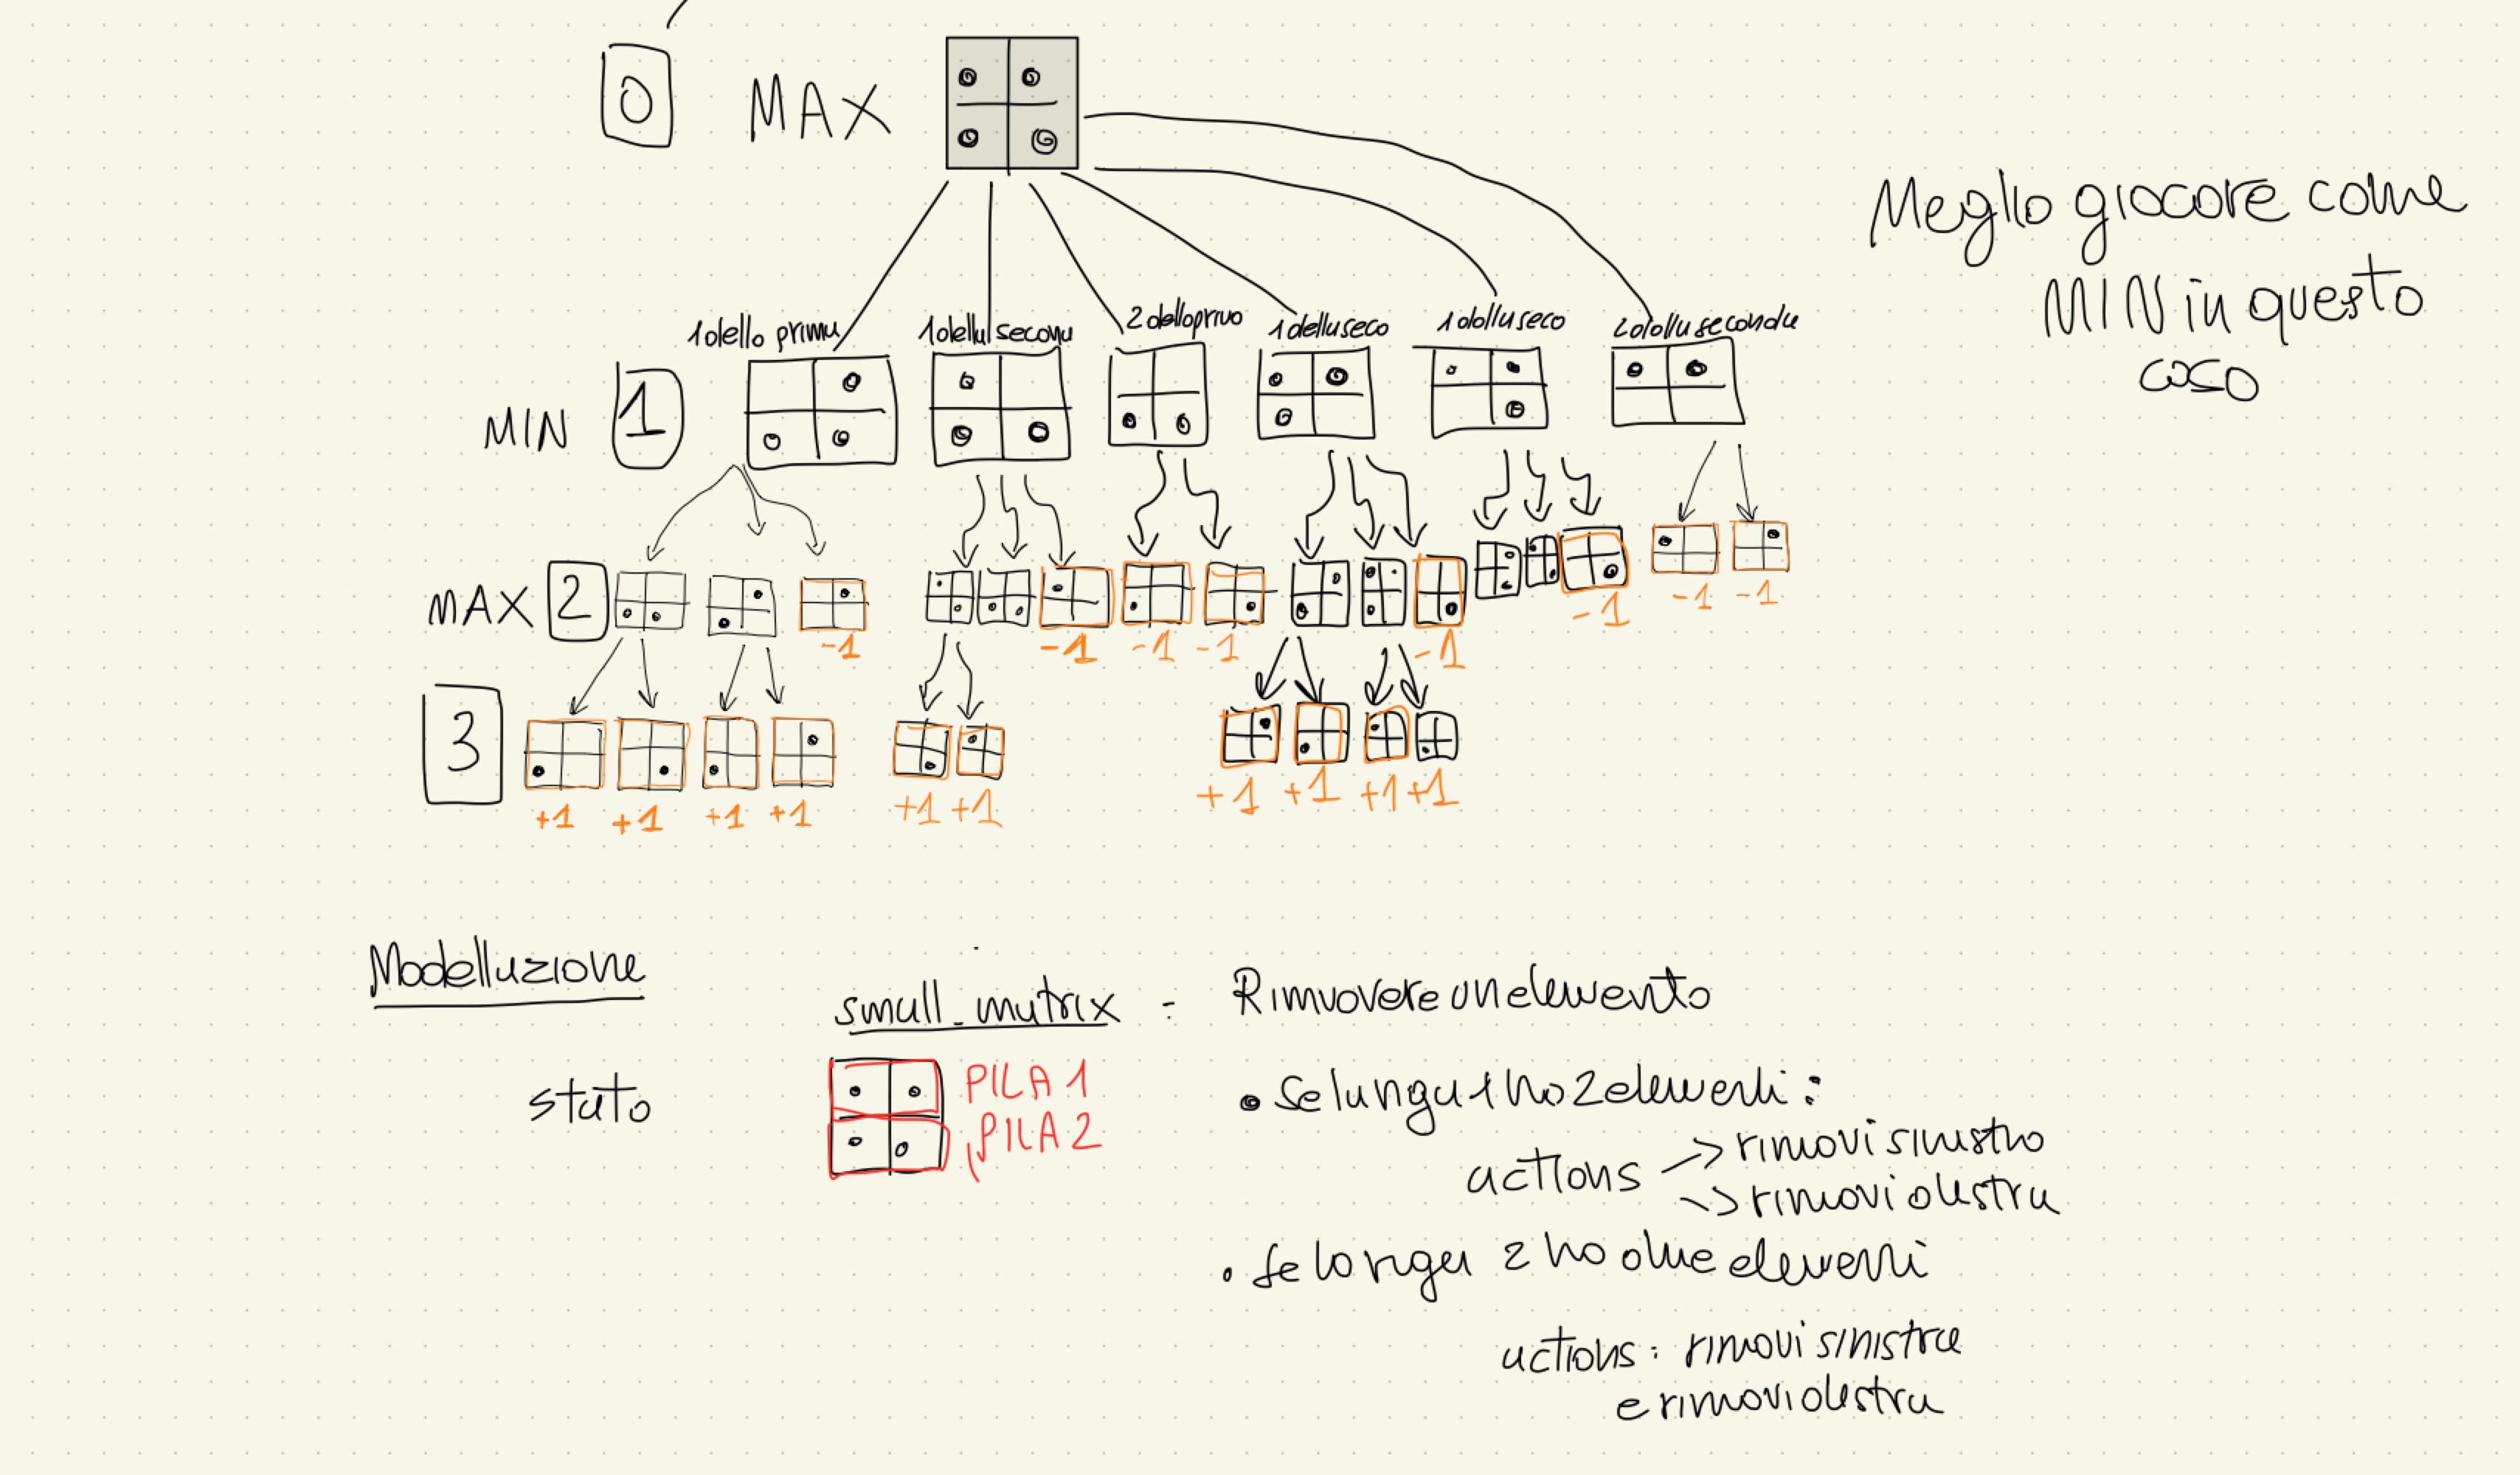 0 MAX
Meglio giocare come
MIN in questo
caso
1 della prima
1 della seconda
2 della primo
1 della seco
1 della seco
2 della seconda
MIN 1
MAX 2
-1
-1
-1
-1
-1
-1
-1
-1
3
+1
+1
+1
+1
+1
+1
+1
+1
+1
+1
Modellazione
small_matrix : Rimuovere un elemento
stato
PILA 1
PILA 2
• se la riga 1 ha 2 elementi :
actions -> rimuovi sinistra
-> rimuovi destra
• se la riga 2 ha due elementi
actions : rimuovi sinistra
e rimuovi destra